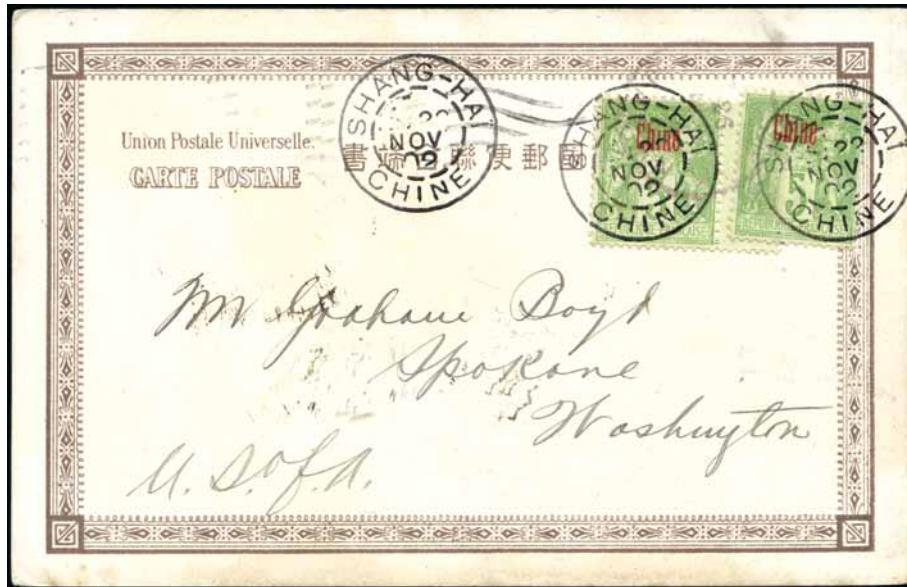 Union Postale Universelle.
CARTE POSTALE
書端郵聯便郵國
SHANG-HAÏ
22
NOV
02
CHINE
Chine
SHANG-HAÏ
NOV
02
CHINE
Chine
5
SHANG-HAÏ
22
NOV
02
CHINE
Mr Grahame Boyd
Spokane
Washington
U. S. of A.